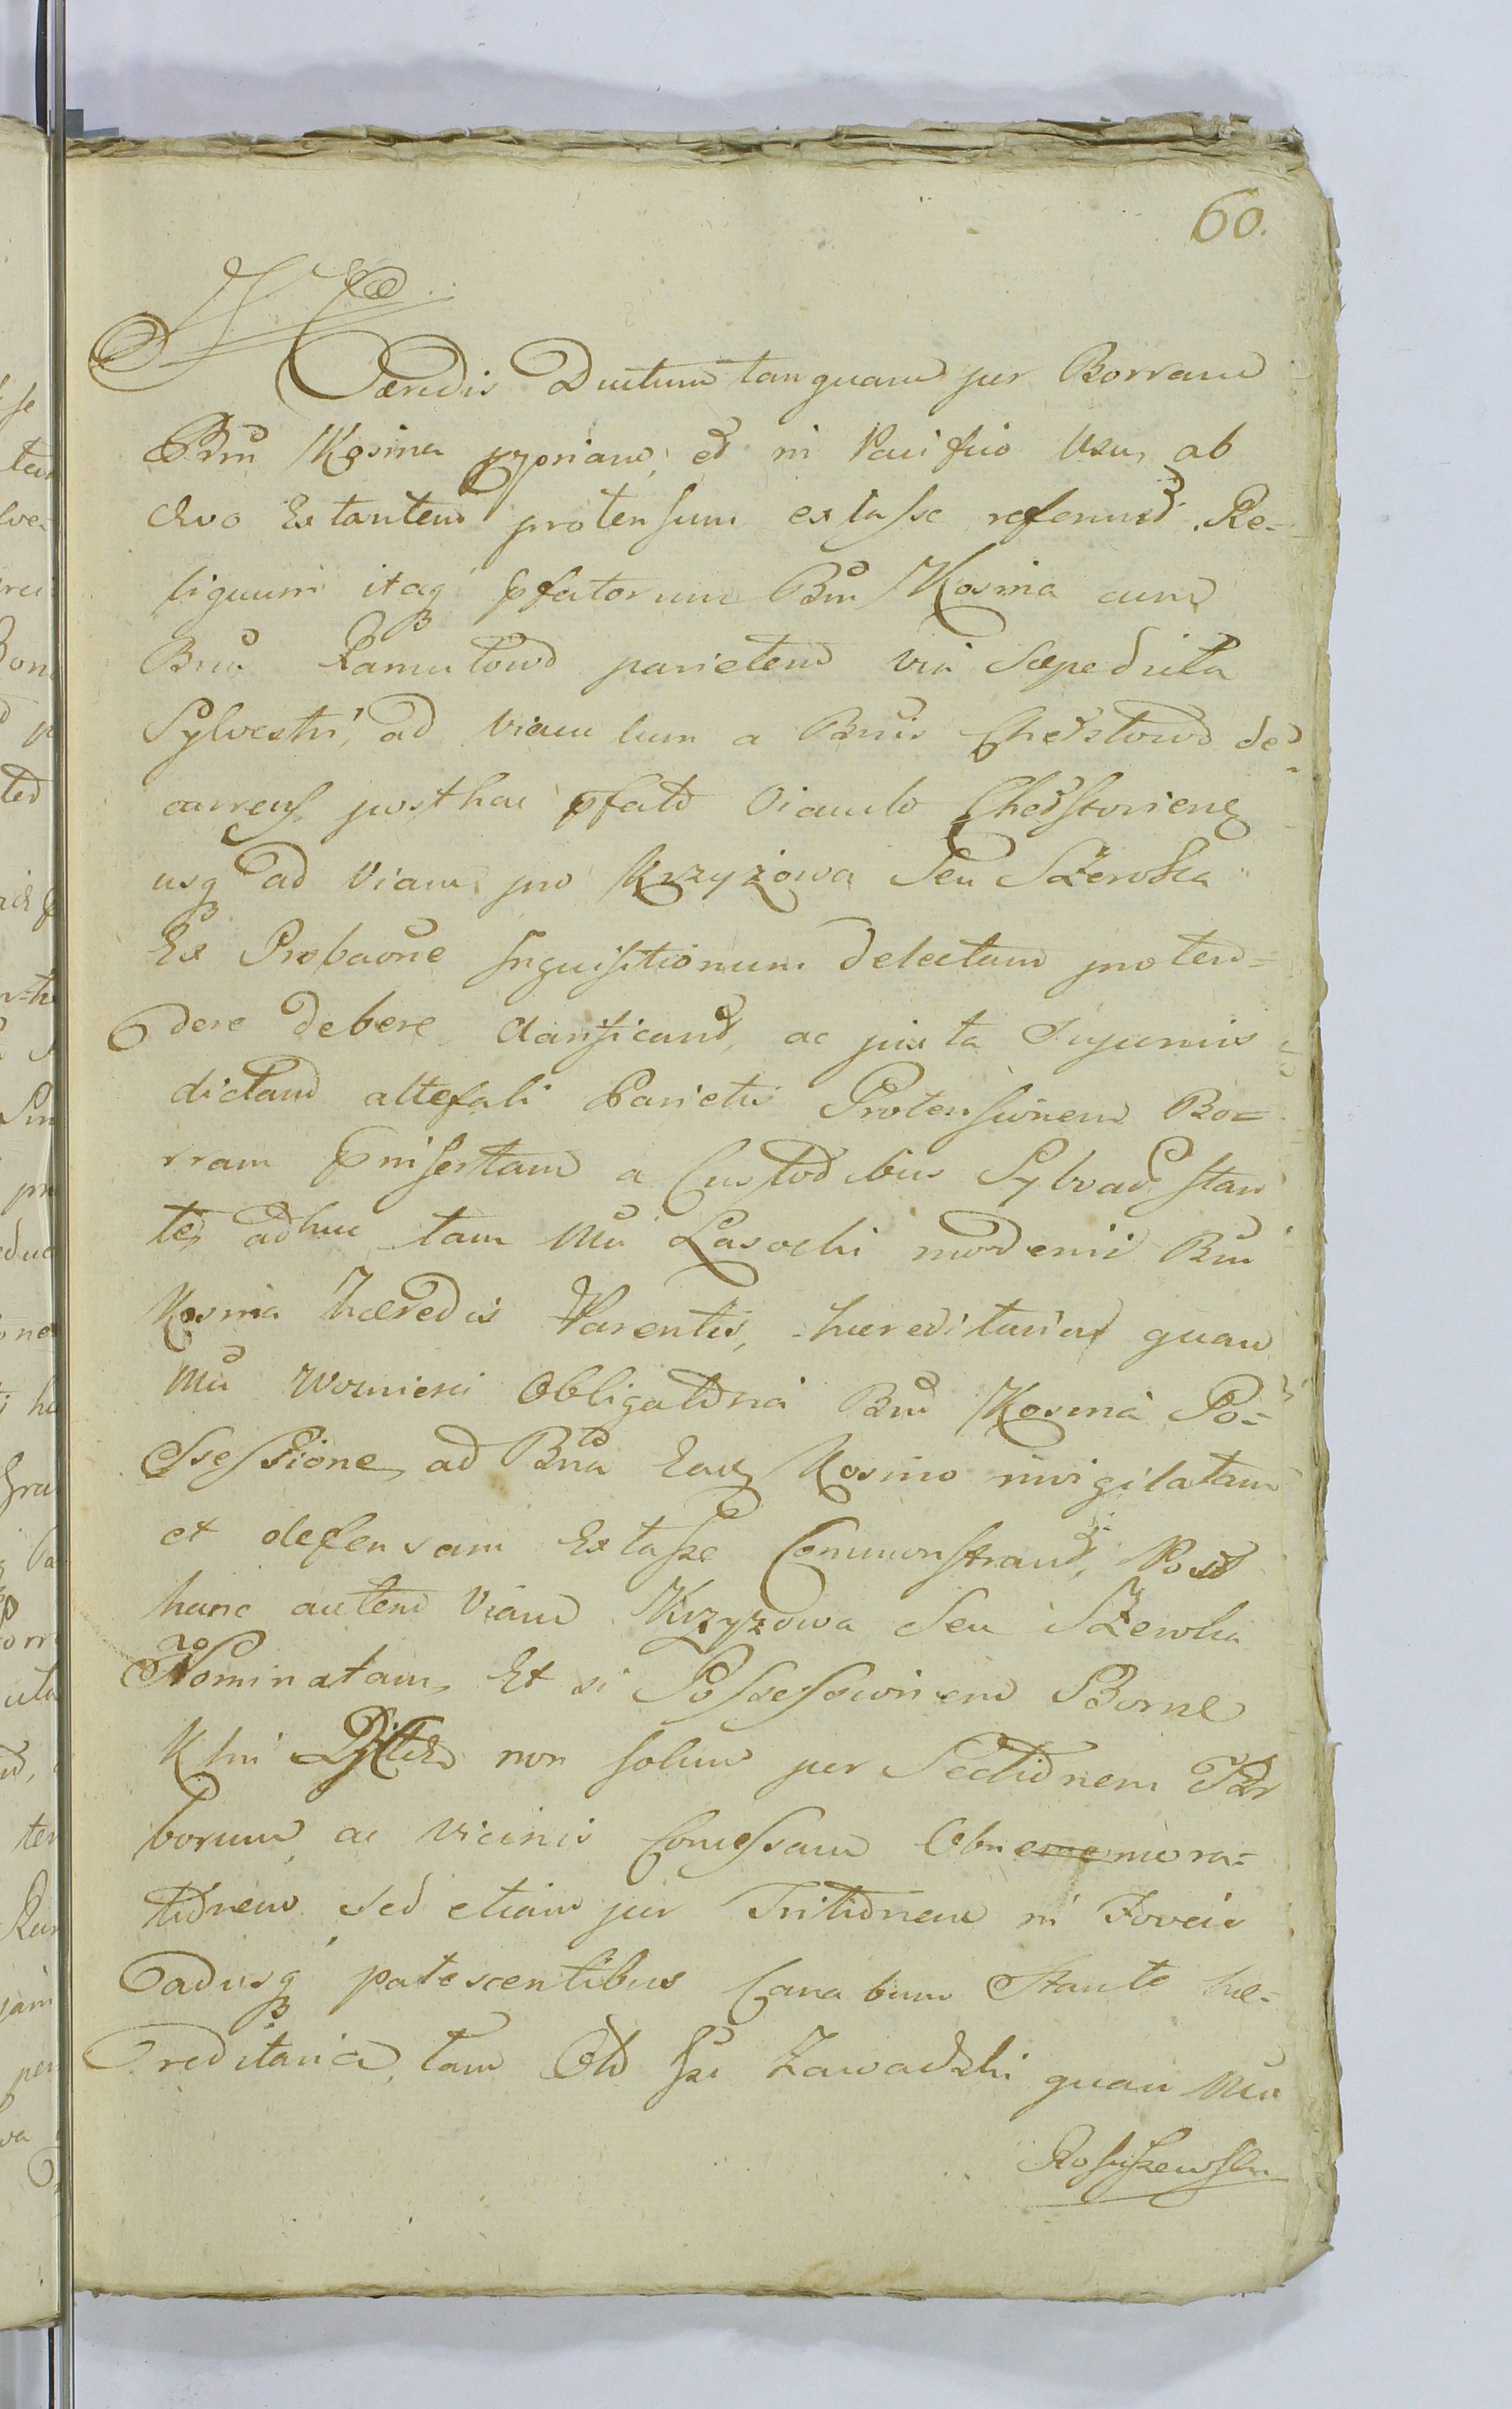 60.
Haeredis Ductum tanquam per Borram
Bru Kosina ppriam, et in Pacifico Usu, ab
Aevo Extantem protensum extasse referund. Re-
liquum itaq pfatorum Bru Kosina cum
Bru Ramutowo parietem via Saepedicta
Sylvestri, ad viam tum a Bruis Chechtowo de-
currens, posthac pfato viaculo
usq ad Viam pro Krzyżowa Seu Szewska
Ex Probaone Inquisitionum delectam proten=
dere debere, clarificand, ac juxta Superius
dictam attefati Parietis Protensionem Bo=
rram insertam a Custodibus Sylvar Stan
te, adhuc tam Mci Lasocki moderni Bru
Kosina haeredis Parentis, haereditaria quam
Mci Woznicki Obligatoria Bru Kosina Po=
ssessione, ad Bna Ead Kosino invigilatam
et defensam Extasse Commonstrand, Post
hanc autem Viam Krzyżowa Seu Szewska
Nominatam, Et si Possessionem Borne
non solum per Sectionem Ar
borum, ac vicinis Concessam Obmemora=
tionem, sed etiam per Tritionem in Foveis
adusq patescentibus Canabum Stante hae=
reditaria, tam Olo Zawadzki quam Mci
Rosciszewski